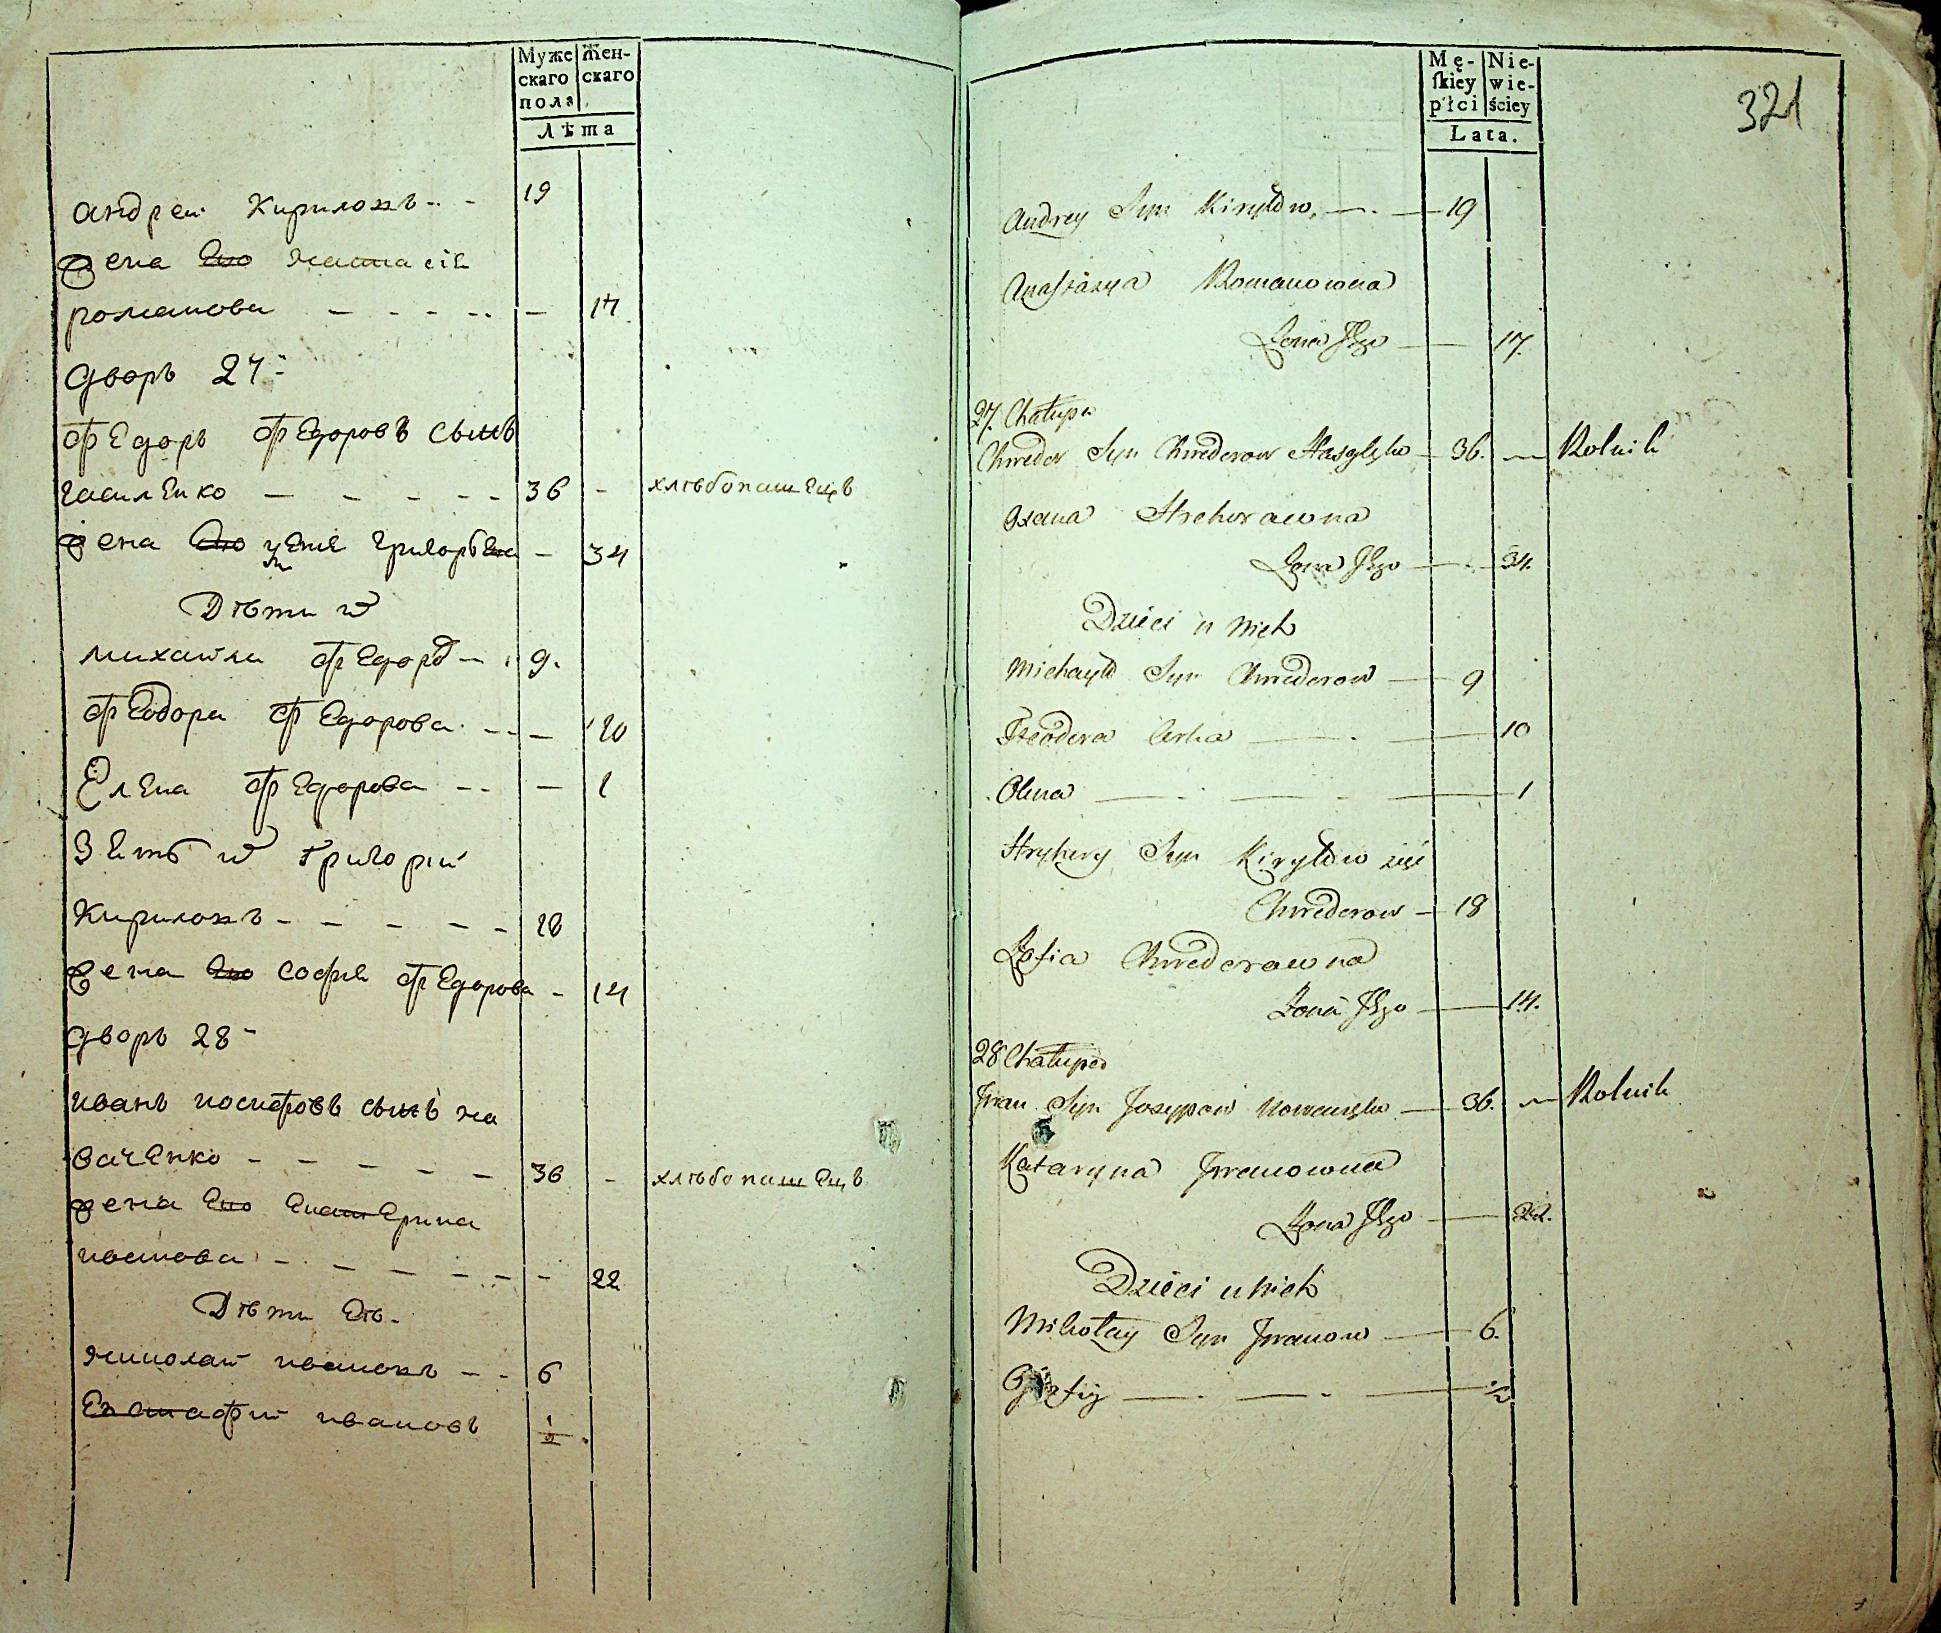 Муже
скаго
пола
Жен-
скаго
Лѣта
андреи Кириловъ - - 19
жена его настасія
романова - - - - - - 17
дворъ 27
Ѳедоръ Ѳедоровъ сынъ
гасиленко - - - - - 36 - хлѣбопашецъ
жена его григорьева - 34
Дѣти их
михайла Ѳедоров - 9.
Ѳеодора Ѳедорова - - - 10
Елена Ѳедорова - - - 1
Зеть их григорій
Кириловъ - - - - - 18
жена его софия Ѳедорова - 14
дворъ 28
иванъ иосифовъ сынъ но
ваченко - - - - - 36 - хлѣбопашецъ
жена его екатерина
иванова - - - - - - 22
Дѣти ев.
николай ивановъ - - 6
Евстафий ивановъ ½
Mę-
ſkiey
płci
Nie-
wie-
ściey
Lata.
321
Andrey Syn Kiryłów, — . — 19
Anastazya Romanowna
Żona Jego — 17.
27. Chałupa
Chweder Syn Chwederow Hasylęko — 36. — Rolnik
Hrehorawna
Żona Jego — 34.
Dzieci u nich
Michayło Syn Chwederow — 9
Teodora Corka — . — 10
Olena — . — . — 1
Hryhory Syn Kiryłów zięć
Chwederow — 18
Zofia Chwederawna
Żona Jego — 14.
28 Chałupa
Iwan Syn Jozypow Nowaczęko — 36. — Rolnik
Kataryna Iwanowna
Żona Jego — 22.
Dzieci u nich
Mikołay Syn Iwanow — 6.
— . — . — ½